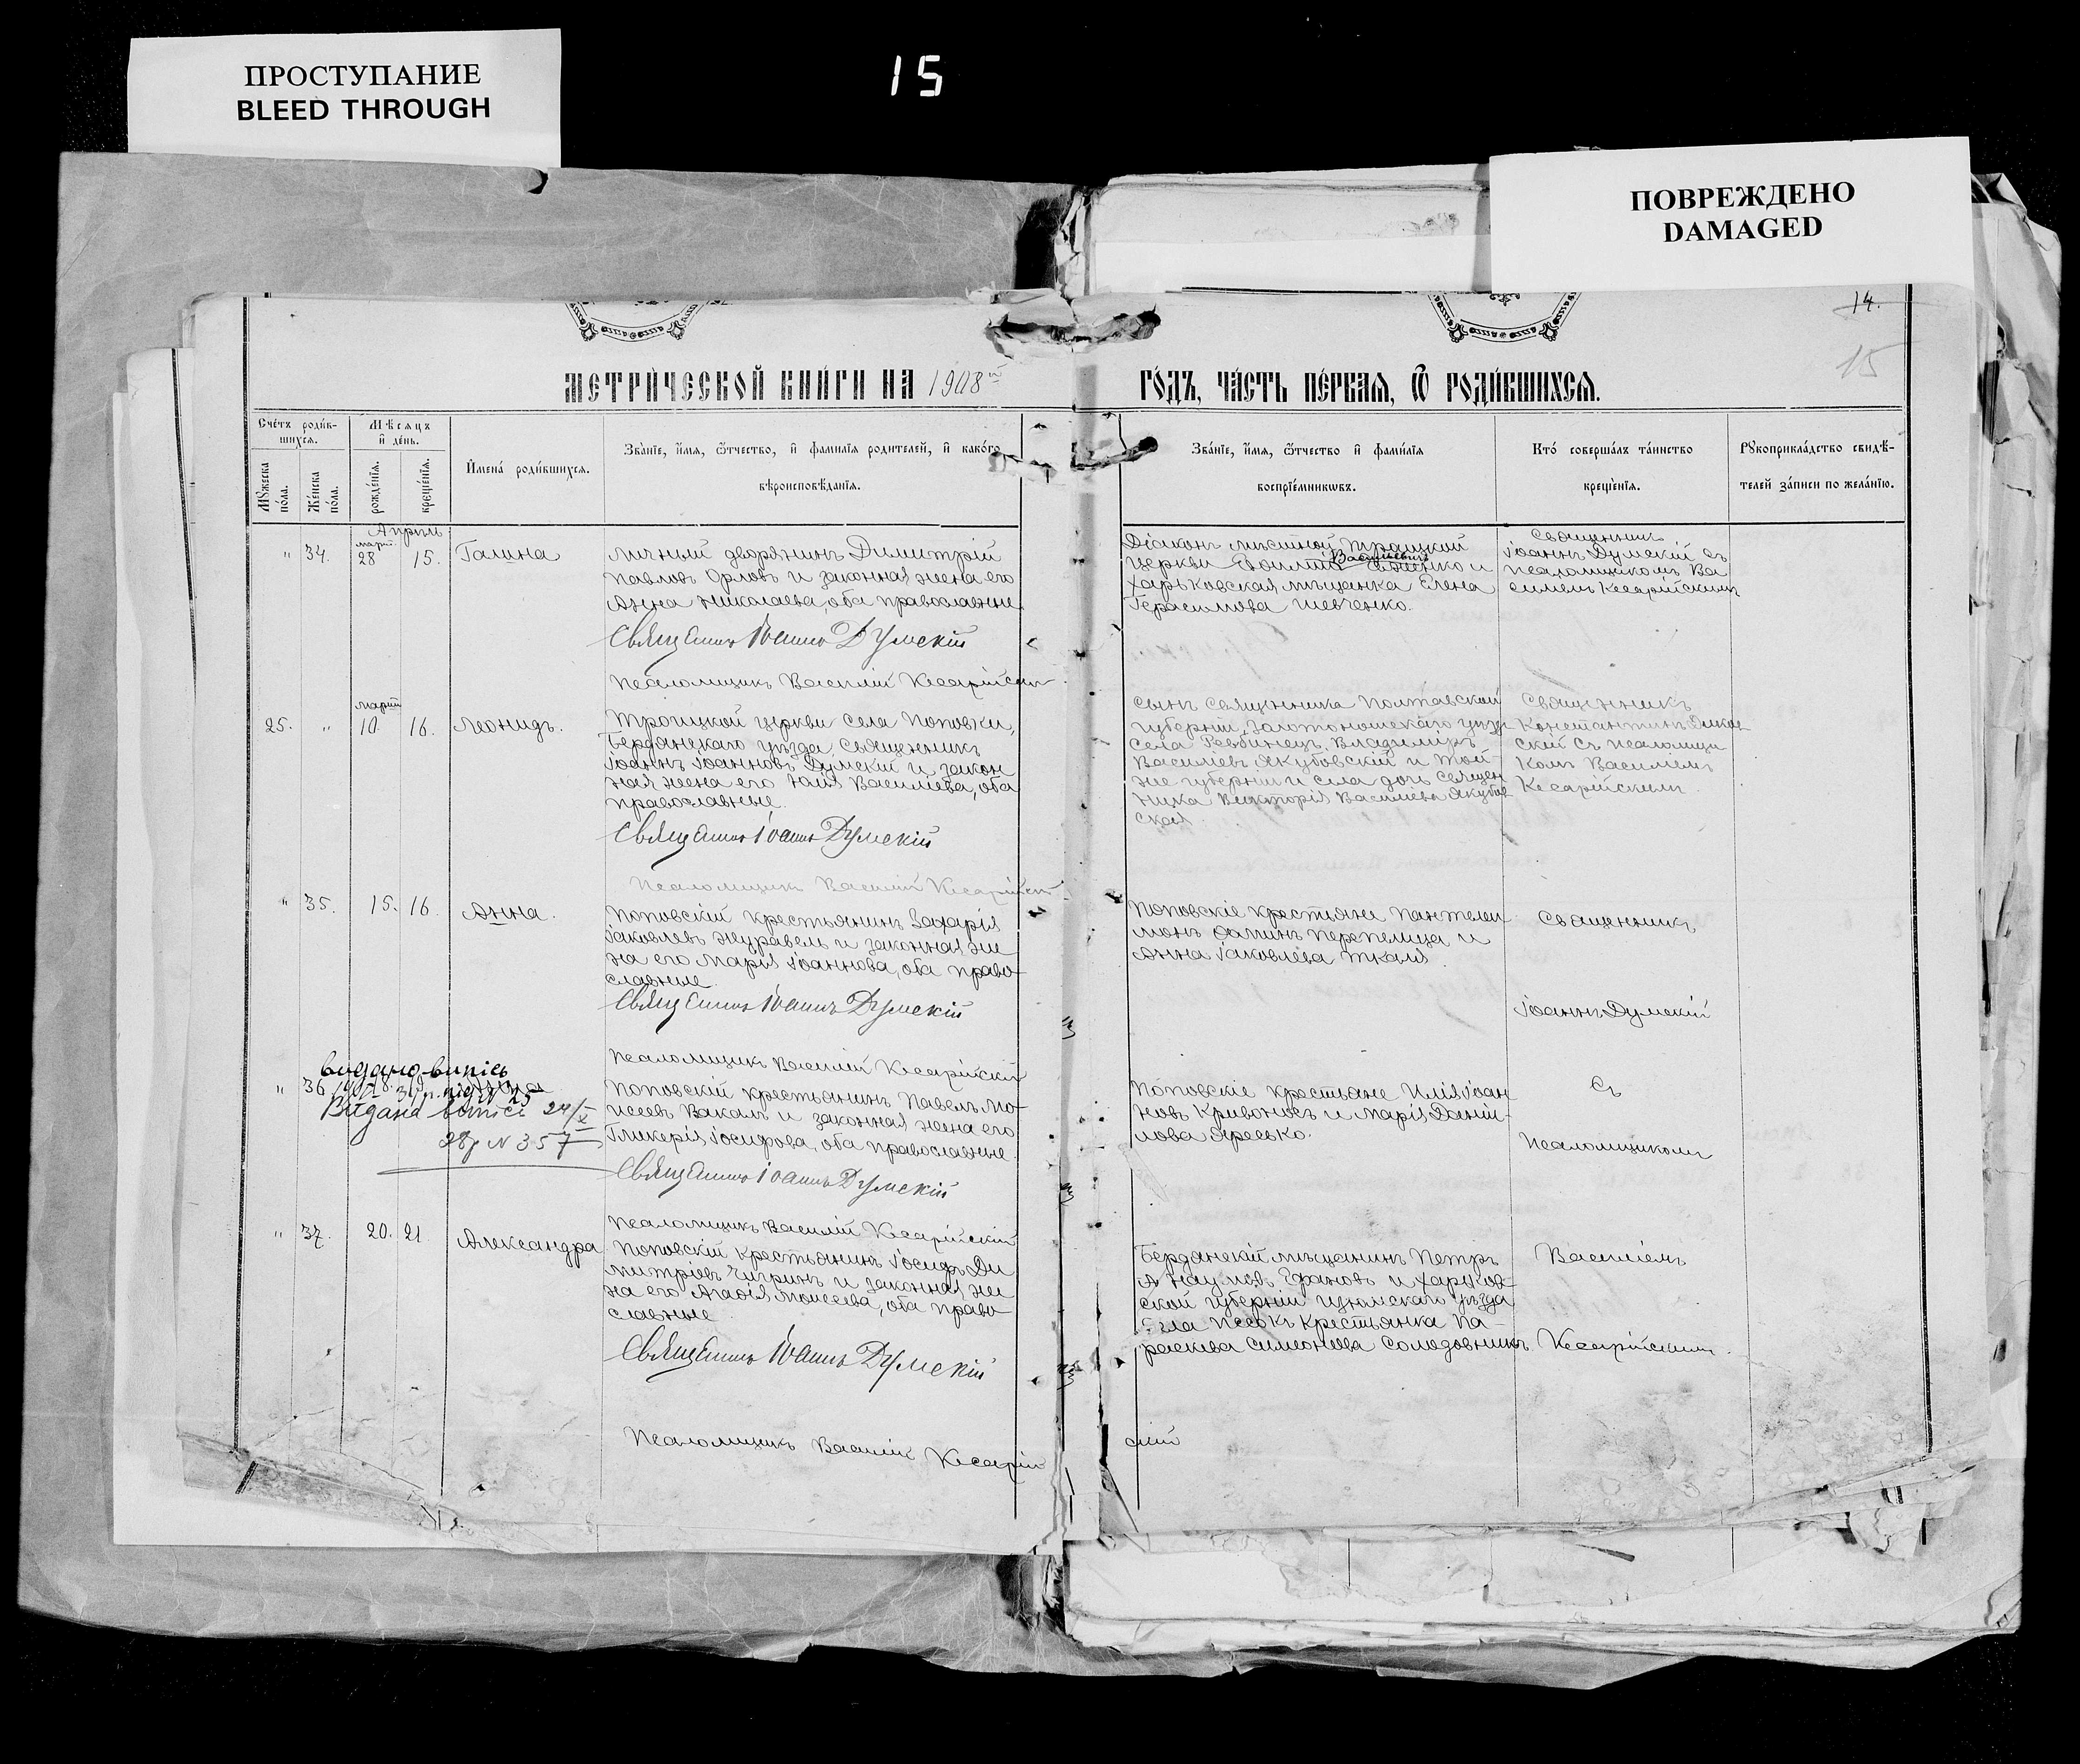 ПРОСТУПАНИЕ
BLEED THROUGH
15
ПОВРЕЖДЕНО
DAMAGED
14.
15
МЕТРИ́ЧЕСКОЙ КНИ́ГИ НА 1908й
ГО́ДЪ, ЧА́СТЬ ПЕ́РВАЯ, Ѿ РОДИ́ВШИХСЯ.
Сче́тъ роди́в-
шихся.
Мѣсяцъ
и҆ де́нь.
Мꙋ́жеска
по́ла.
Же́нска
по́ла.
рожде́нїя.
креще́нїя.
И҆мена̀ роди́вшихся.
Зва́нїе, и҆́мя, ѻ҆́тчество, и҆ фами́лїя родителей, и҆ како́гѡ
вѣроисповѣ́данїя.
Зва́нїе, и҆́мя, ѻ҆́тчество и҆ фами́лїя
воспрїе́мникѡвъ.
Кто́ соверша́лъ та́инство
креще́нїя.
Рꙋкоприкла́дство свидѣ́-
телей за́писи по жела́нїю.
Апрѣль
" 34. мартъ 28 15. Галина
Личный дворянинъ Димитрій
Павловъ Орловъ и законная жена его
Анна Николаева, оба православные.
Священникъ Іоаннъ Думскій
Псаломщикъ Василій Кесарійскій
Діаконъ мѣстной Троицкой
Церкви Васильевичъ и
Харьковская мѣщанка Елена
Герасимова Шевченко.
Священникъ
Іоаннъ Думскій съ
псаломщикомъ Ва-
силіемъ Кесарійскимъ
25. " мартъ 10. 16. Леонидъ.
Троицкой церкви села Поповки,
Бердянскаго уѣзда, священникъ
Іоаннъ Іоанновъ Думскій и закон
ная жена его Юлія Василіева, оба
православные.
Священникъ Іоаннъ Думскій
Псаломщикъ Василій Кесарійскій
Сынъ священника Полтавской
губерніи, Золотоношскаго уѣзда
села Владиміръ
Василіевъ Якубовскій и той-
же губерніи и села дочь священ
ника Викторія Василіева Якубов
ская.
Священникъ
Константинъ
скій съ псаломщи
комъ Василіемъ
Кесарійскимъ.
" 35. 15. 16. Анна.
Поповскій крестьянинъ Захарія
Іаковлевъ Журавель и законная же
на его Марія Іоаннова, оба право-
славные.
Священникъ Іоаннъ Думскій
Псаломщикъ Василій Кесарійскій
Поповскіе крестьяне Пантелеи
монъ Перепелица и
Анна Іаковлева Ткаля.
Священникъ
Іоаннъ Думскій
видано випісь
" 36
Видана 24/X
28р N 357
Поповскій крестьянинъ Павелъ Мо-
исеевъ Вакалъ и законная жена его
Гликерія Іосифова, оба православные.
Священникъ Іоаннъ Думскій
Псаломщикъ Василій Кесарійскій
Поповскіе крестьяне Илія Іоан
новъ Кривоносъ и Марія Даніи-
лова Яресько.
Съ
Псаломщикомъ
" 37. 20. 21. Александра
Поповскій крестьянинъ Іосифъ Ди
митріевъ Чигринъ и законная же
на его Агафія Моисеева, оба право-
славные.
Священникъ Іоаннъ Думскій
Псаломщикъ Василій Кесарій
скій
Бердянскій мѣщанинъ Петръ
и Харьков-
ской губерніи Изюмскаго уѣзда
села крестьянка Па-
раскева Симеонова Солодовникъ
Василіемъ
Кесарійскимъ.